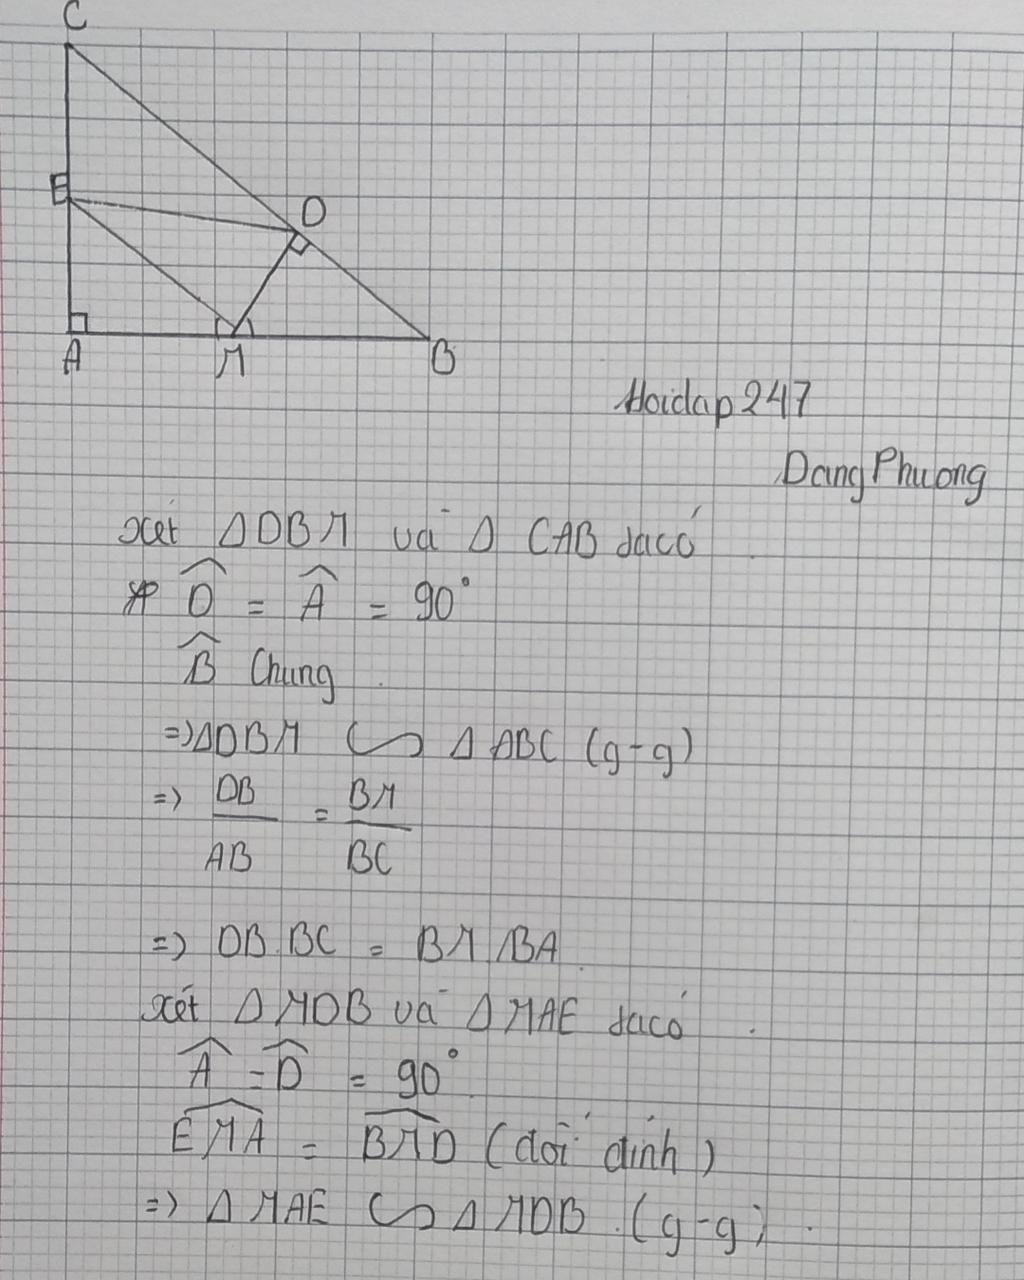 C
E
D
A
M
B
Hoidap247
Dang Phuong
xét Δ DBM và Δ CAB ta có
* D̂ = Â = 90°
B̂ Chung
=> Δ DBM ∽ Δ ABC (g-g)
=> DB/AB = BM/BC
=> DB.BC = BM.BA
xét Δ MDB và Δ MAE ta có
 = D̂ = 90°
EMA = BMD (đối đỉnh)
=> Δ MAE ∽ Δ MDB (g-g)